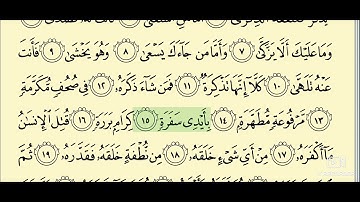 وَمَا عَلَيْكَ أَلَّا يَزَّكَّىٰ ٧ وَأَمَّا مَن جَآءَكَ يَسْعَىٰ ٨ وَهُوَ يَخْشَىٰ ٩ فَأَنتَ
عَنْهُ تَلَهَّىٰ ١٠ كَلَّآ إِنَّهَا تَذْكِرَةٌ ١١ فَمَن شَآءَ ذَكَرَهُۥ ١٢ فِى صُحُفٍ مُّكَرَّمَةٍ
١٣ مَّرْفُوعَةٍ مُّطَهَّرَةٍۭ ١٤ بِأَيْدِى سَفَرَةٍ ١٥ كِرَامٍۭ بَرَرَةٍ ١٦ قُتِلَ ٱلْإِنسَٰنُ
مَآ أَكْفَرَهُۥ ١٧ مِنْ أَىِّ شَىْءٍ خَلَقَهُۥ ١٨ مِن نُّطْفَةٍ خَلَقَهُۥ فَقَدَّرَهُۥ ١٩ ثُمَّ